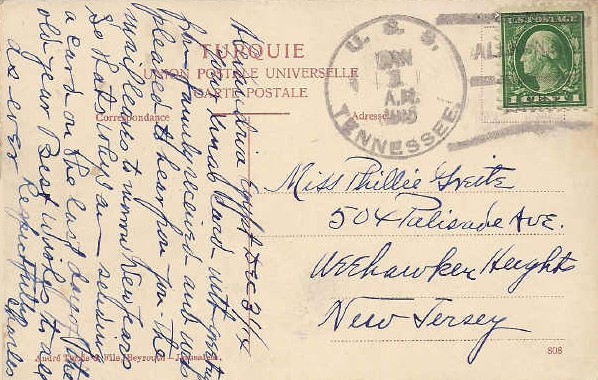 TURQUIE
UNION POSTALE UNIVERSELLE
CARTE POSTALE
Correspondance
Adresse
U. S. S.
JAN
1
A.M.
TENNESSEE
U.S. POSTAGE
1 CENT 1
Alexandria Egypt Dec 31/14
Your Xmas Card with greetings
from family received and was
pleased to hear from you the
mail leaves to-morrow New Years
So thats why I am sending
a card on the last day of the
old year Best wishes to all
Respectfully
As ever
Charles
Miss Phillie
504 Palisade Ave.
Weehawken Heights
New Jersey
André Terzis & Fils, Beyrouth - Jerusalem.
808